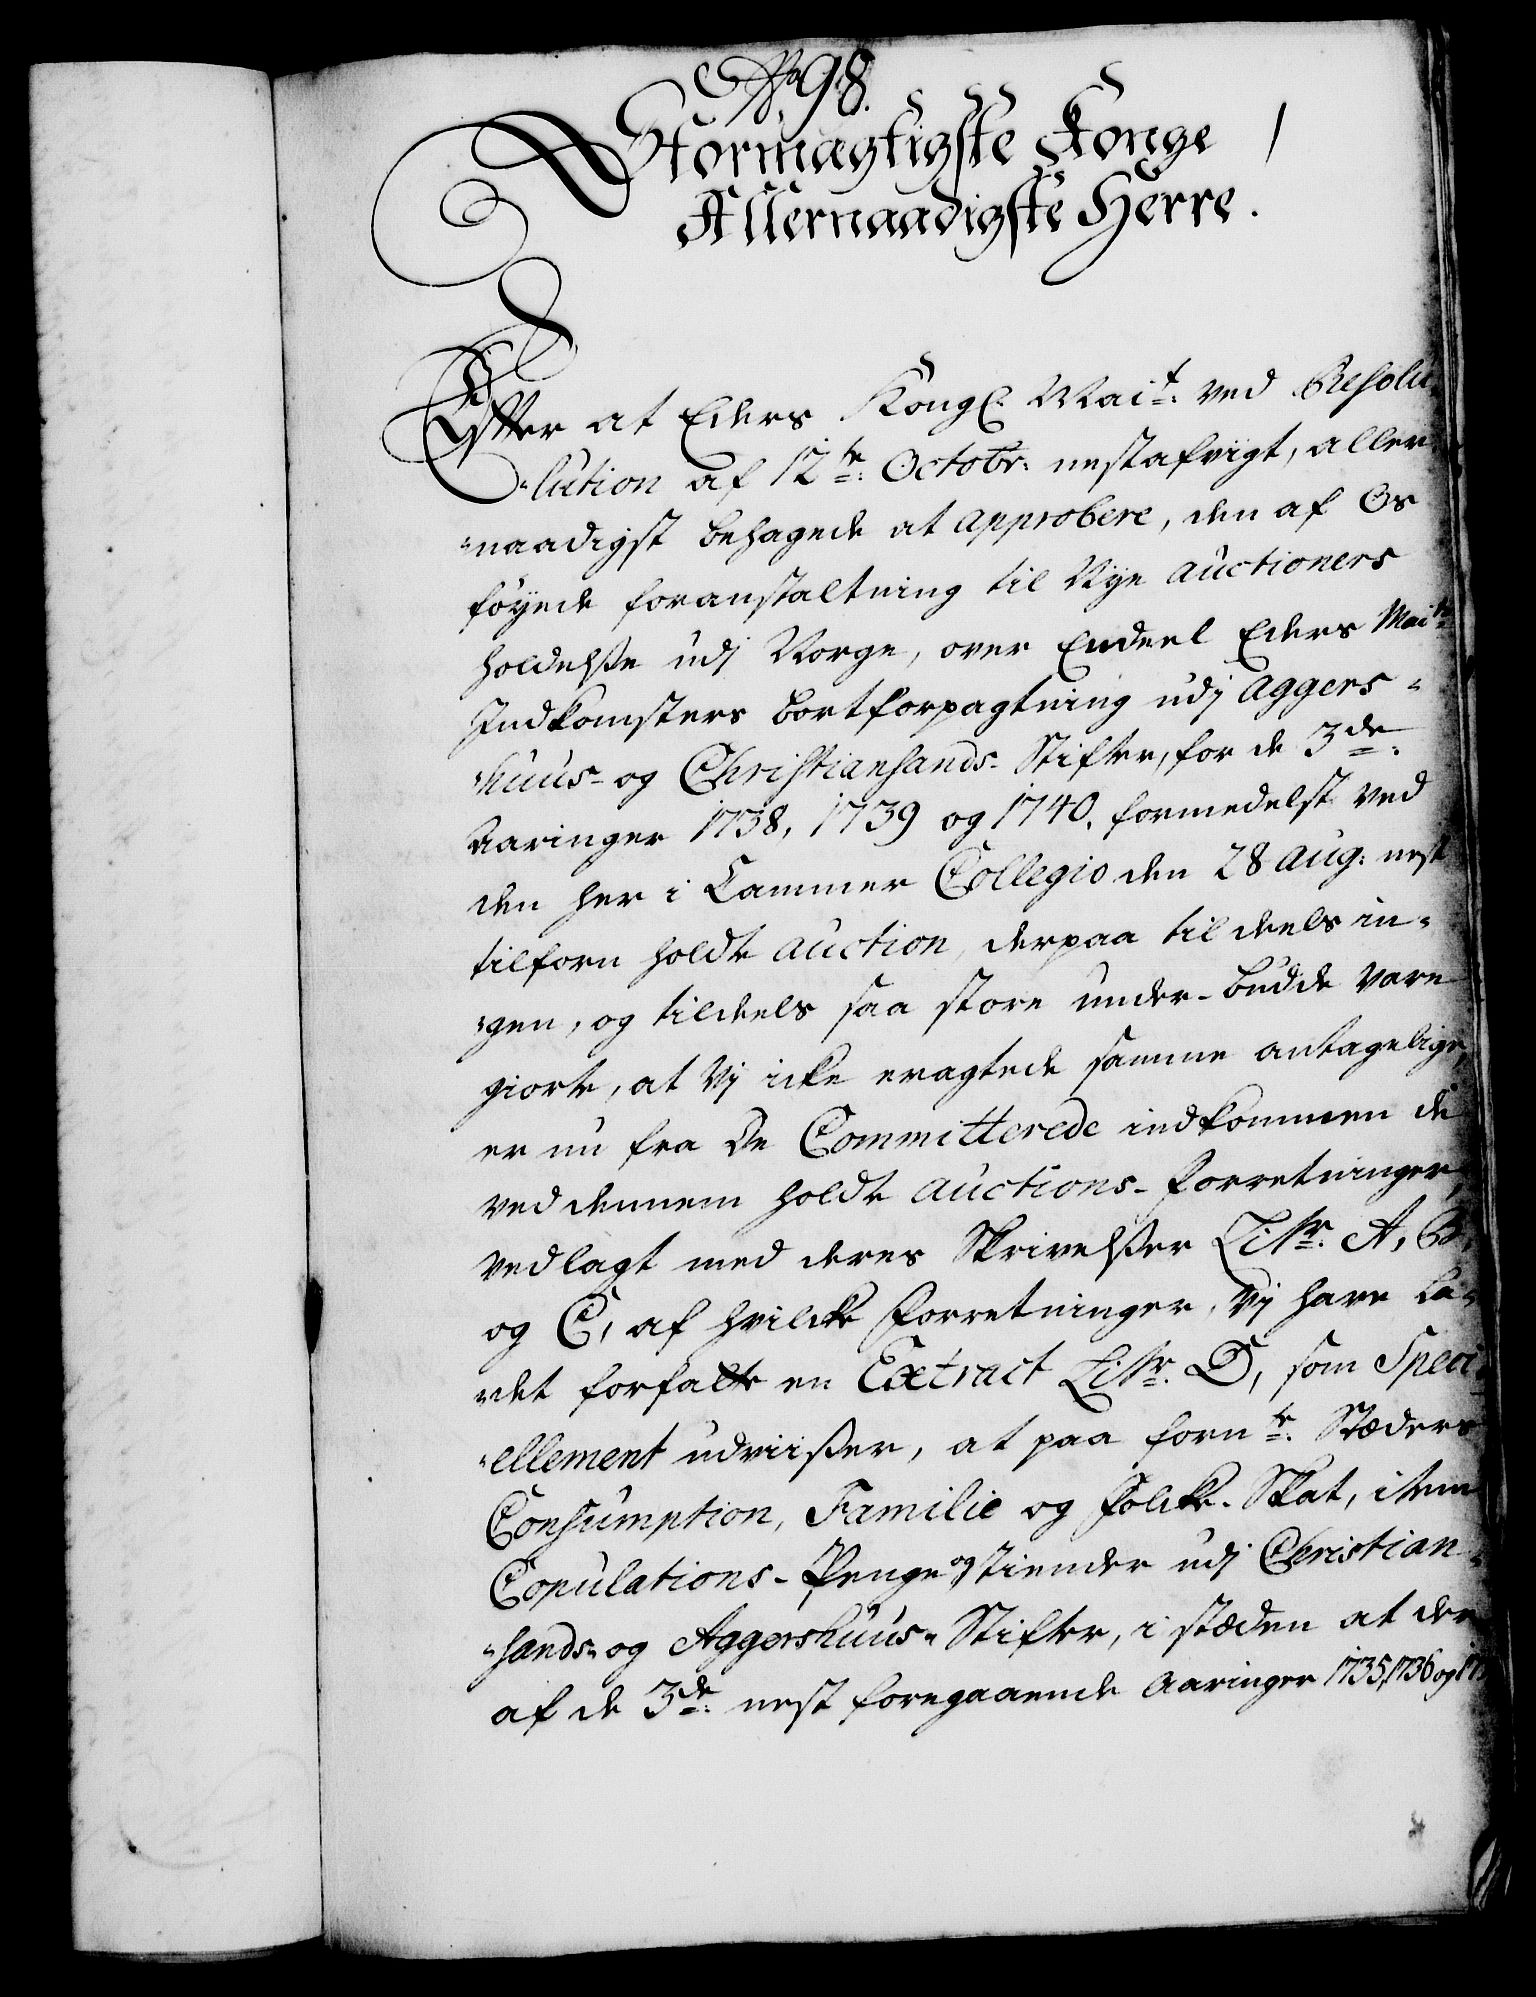 No 98.
Stormægtigste Konge
Allernaadigste Herre.
Efter at Eders Kongl. Mait: ved Resolu
-lution af 12te: Octobr: nestafvigt, aller
-naadigst behagede at approbere, den af Os
föyede foranstaltning til Nye auctioners
holdelsße udj Norge, over Endeel Eders Maits
Indkomsters bortforpagtning udj Aggers-
-huus- og Christiansands- Stifter, for de 3de:
Aaringer 1738, 1739 og 1740, formedelst ved
den her i Cammer Collegio den 28 Aug: nest
tilforn holdte auction, derpaa til deels in-
-gen, og tildeels saa store under-budde vare
giorte, at Vj icke eragtede samme antagelige,
er nu fra De Committerede indkommen de
ved dennem holdte auctions-forretninger,
vedlagt med deres Skrivelsßer Litr. A, B,
og C, af hvilcke forretninger, Vj have la-
-det forfatte en Extract Litr. D, som Speci
-ellement udviißer, at paa fornte: Stæders
Consumption, Familie og folcke-Skat, item
Copulations-Penge og tiender udj Christian-
-sands- og Aggershuus- Stifter, i stæden at der
af de 3de: nest foregaaende Aaringer 1735, 1736 og